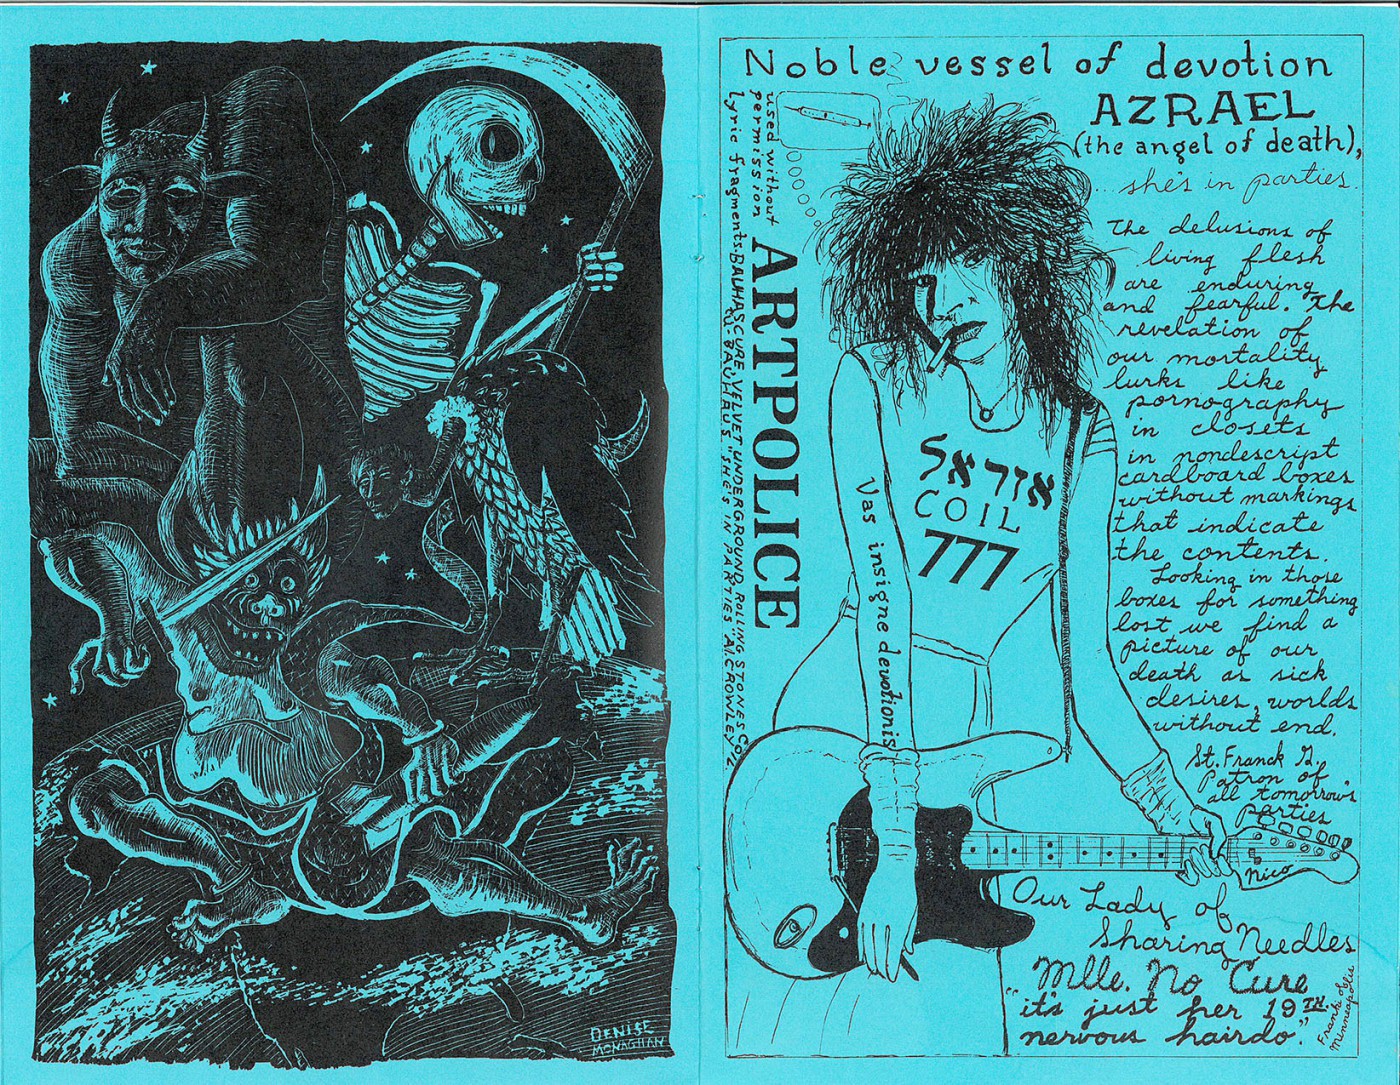 DENISE
MONAGHAN
Noble vessel of devotion
AZRAEL
(the angel of death),
...she's in parties.
used without
permission
lyric fragments: BAUHAUS, CURE, VELVET UNDERGROUND, ROLLING STONES, COIL
BAUHAUS "SHE'S IN PARTIES" A. CROWLEY
ARTPOLICE
The delusions of
living flesh
are enduring
and fearful. The
revelation of
our mortality
lurks like
pornography
in closets
in nondescript
cardboard boxes
without markings
that indicate
the contents.
Looking in those
boxes for something
lost we find a
picture of our
death as sick
desires, worlds
without end.
St. Franck G.
Patron of
"all tomorrow's
parties"
אזראל
COIL
777
Vas insigne devotionis
Nico
Our Lady of
Sharing Needles
Mlle. No Cure
"it's just her 19TH.
nervous hairdo."
Minneapolis